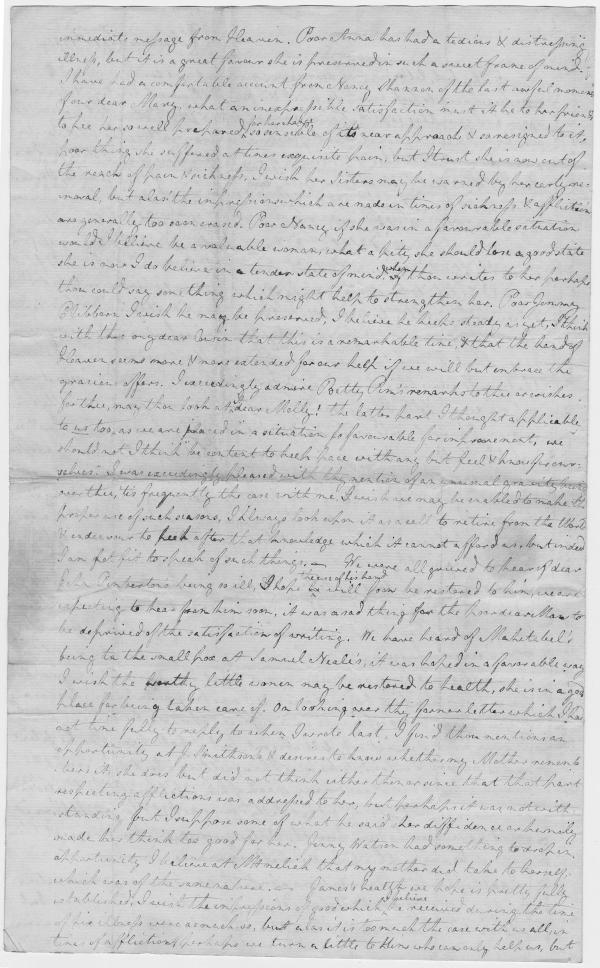 immediate message from Heaven. Poor Anna has had a tedious & distressing
illness, but it is a great favour she is preserved in such a sweet frame of mind.
I have had a comfortable account from Nancy Shannon of the last awful moments
of our dear Mary, what an inexpressible satisfaction must it be to her friends
to see her so well prepared for her change, so sensible of its near approach & so resigned to it,
poor thing she suffered at times exquisite pain, but I trust she is now out of
the reach of pain & sickness, I wish her Sisters may be warned by her early re-
moval, but alas! the impressions which are made in times of sickness & affliction
are generally too soon erased. Poor Nancy if she was in a favourable situation
would I believe be a valuable woman, what a pity she should lose a good state
she is now I do believe in a tender state of mind, when thou writes to her perhaps
thou could say something which might help to strengthen her. Poor Jemmy
Clibborn I wish he may be preserved, I believe he keeps steady as yet, I think
with thee my dear Cousin that this is a remarkable time, & that the hand of
Heaven seems more & more extended for our help if we will but embrace the
gracious offers. I exceedingly admire Betty Pim's remarks to thee or wishes
for thee, may thou look at it, dear Molly! the latter part I thought applicable
to us too, as we are placed in a situation so favourable for improvement, we
should not I think be content to keep pace with any but feel & know for our-
selves. I was exceedingly pleased with thy mention of an unusual gravity being
over thee, 'tis frequently the case with me, I wish we may be enabled to make the
proper use of such seasons, I always look upon it as a call to retire from the World
& endeavour to seek after that knowledge which it cannot afford us, but indeed
I am not fit to speak of such things. — We were all grieved to hear of dear
John Pemberton's being so ill, I hope the use of his hand will soon be restored to him, we are
expecting to hear from him soon, it was a sad thing for the poor dear Man to
be deprived of the satisfaction of writing. We have heard of Mehetabel's
being in the small pox at Samuel Neale's, it was hoped in a favorable way
I wish the worthy little women may be restored to health, she is in a good
place for being taken care of. On looking over thy former letter which I had
not time fully to reply to when I wrote last, I find thou mentions an
opportunity at & desires to know whether my Mother remem-
bers it, she does but did not think either then or since that that part
respecting afflictions was addressed to her, but perhaps it was notwith-
standing, but I suppose some of what he said her diffidence or humility
made her think too good for her. Jenny Watson had something to drop in
opportunity I believe at that my mother did take to herself
which was of the same nature. — James's health we hope is pretty fully
established, I wish the impressions of good which I believe he received during the time
of his illness were as much so, but alas it is too much the case with us all, in
time of affliction perhaps we turn a little to Him who can only help us, but